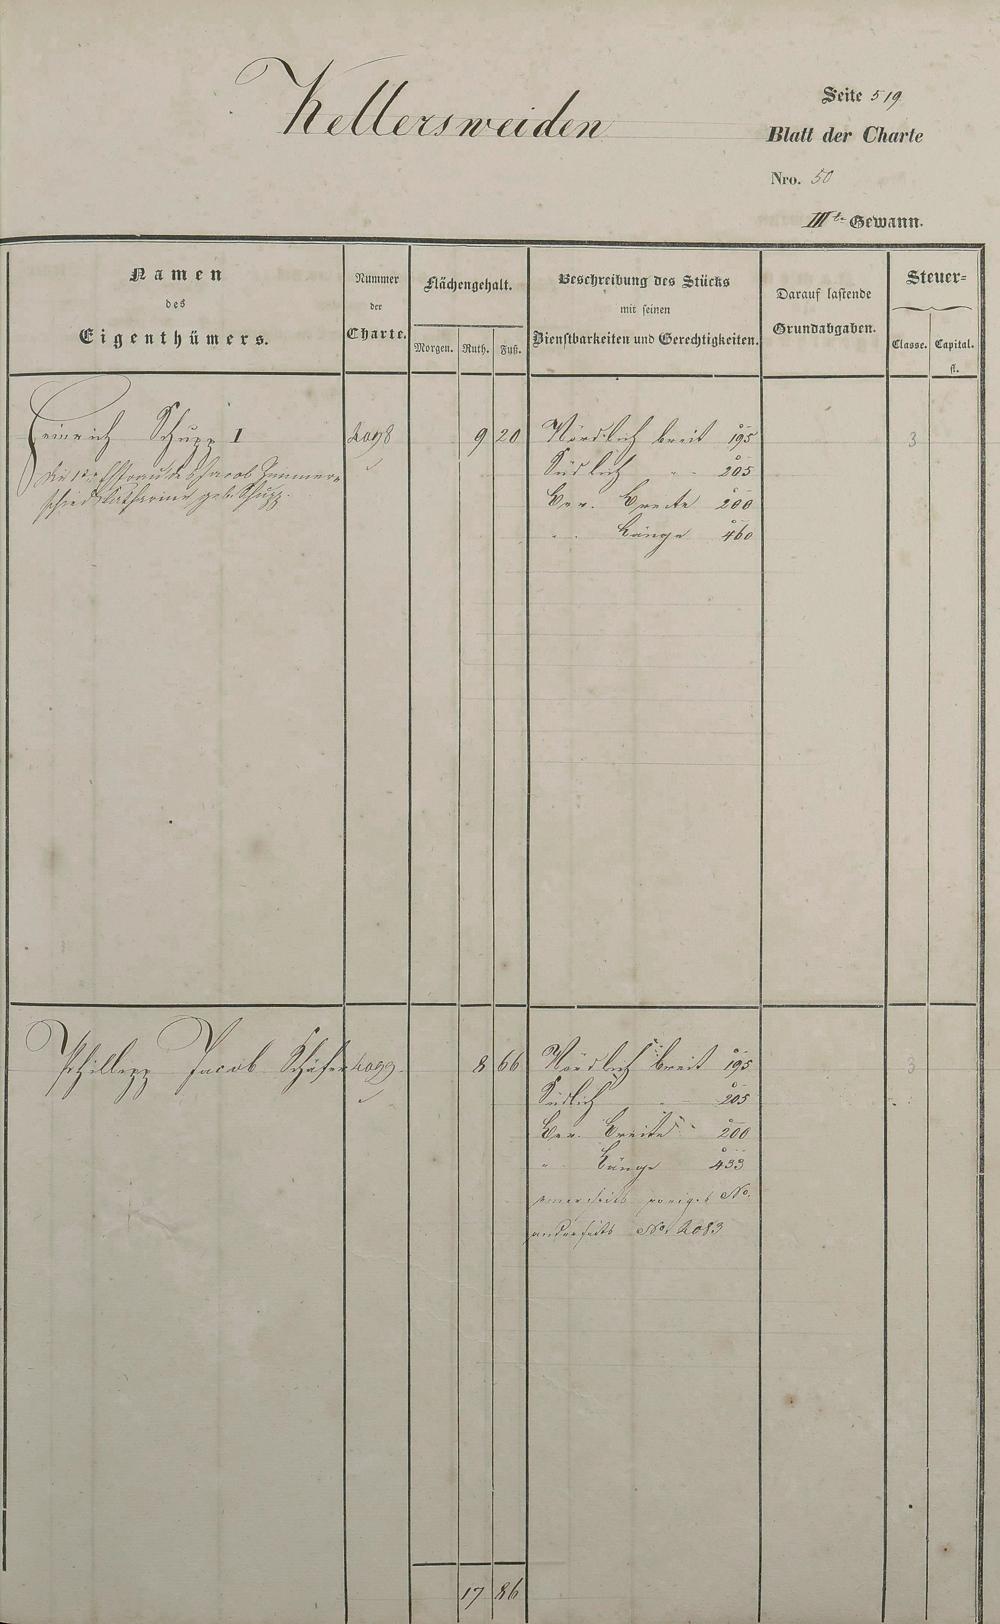 Kellersweiden
Seite 519
Blatt der Charte
Nro. 50
IIIte Gewann.
Namen des Eigenthümers.
Nummer der Charte.
Flächengehalt.
Morgen. Ruth. Fuß.
Beschreibung des Stücks mit seinen Dienstbarkeiten und Gerechtigkeiten.
Darauf lastende Grundabgaben.
Steuer-
Classe. Capital. fl.
Heinrich Schupp I 2098 9 20 Nördlich breit 195 3
Die Ehefrau des Jacob Zimmer-
schied Katharine geb. Schupp.
Südlich " " 205
Ver. Breite 200
" " Länge 460
Philipp Jacob Schäfer 2099. 8 66 Nördlich breit 195 3
Südlich " 205
Ver. Breite 200
" Länge 433
einerseits voriges No.
anderseits No. 2083
17 86